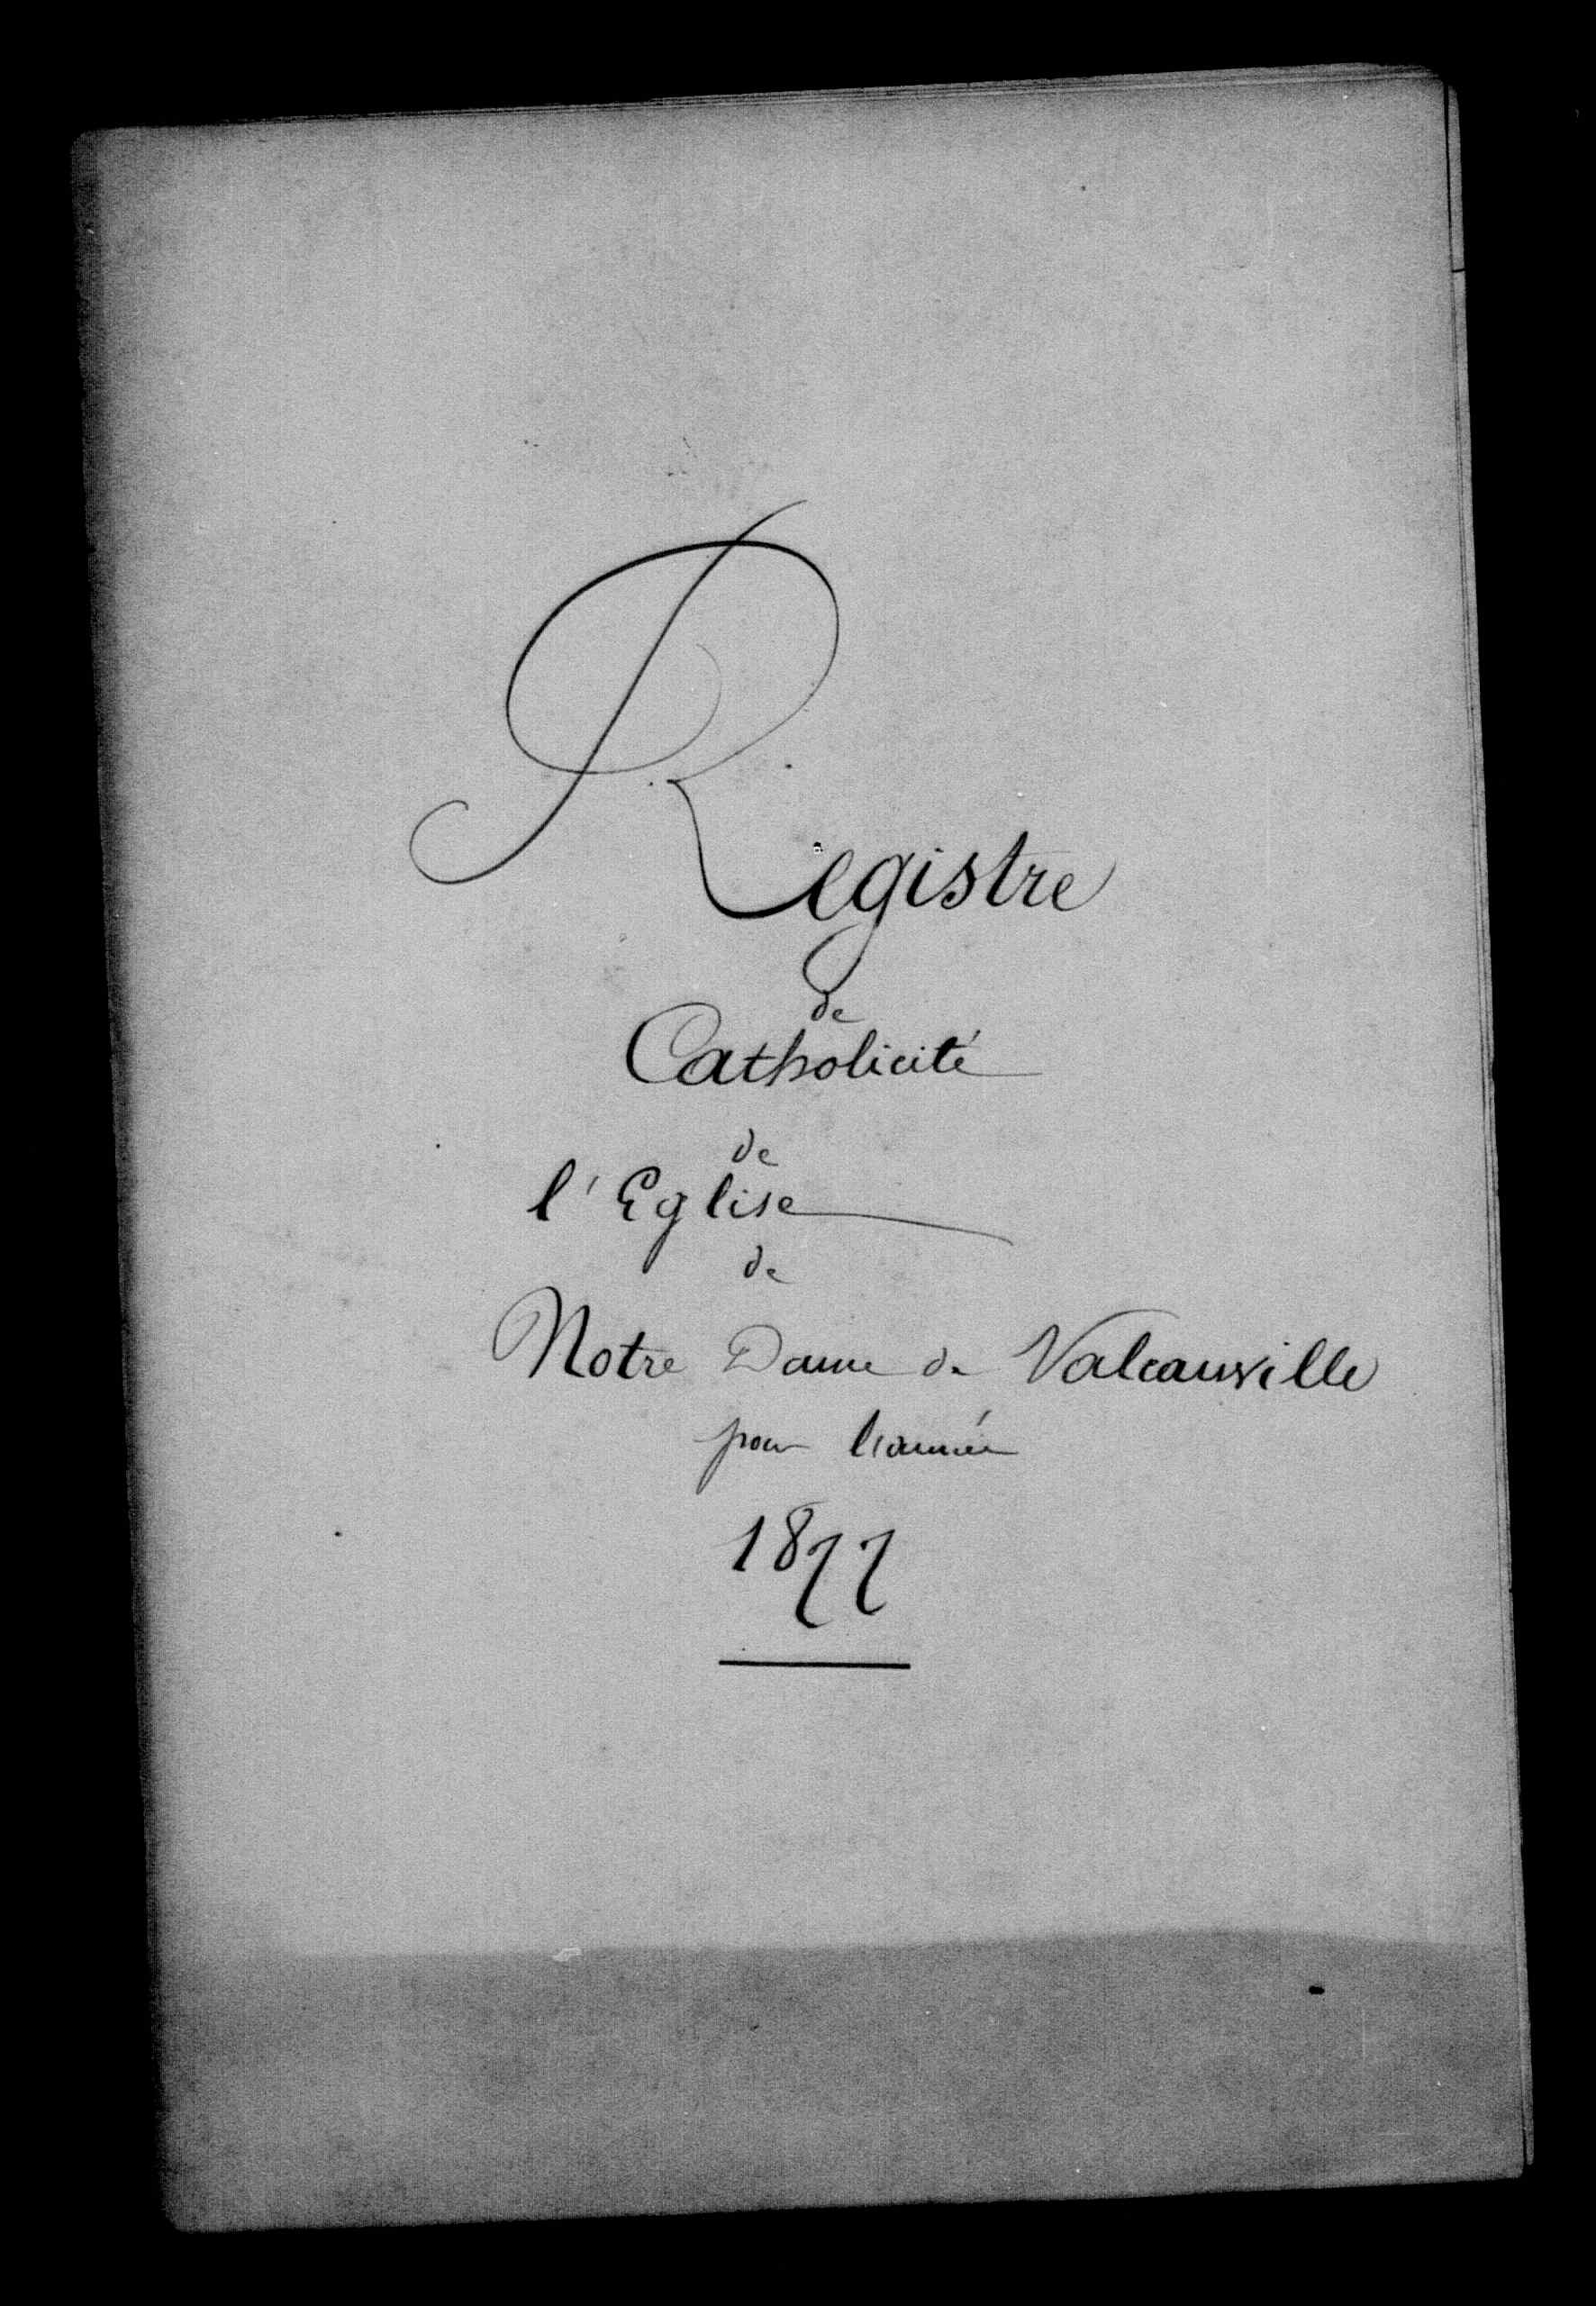 Registre
de
Catholicité
de
l'Eglise
de
Notre Dame de Valcanville
pour l'année
1877